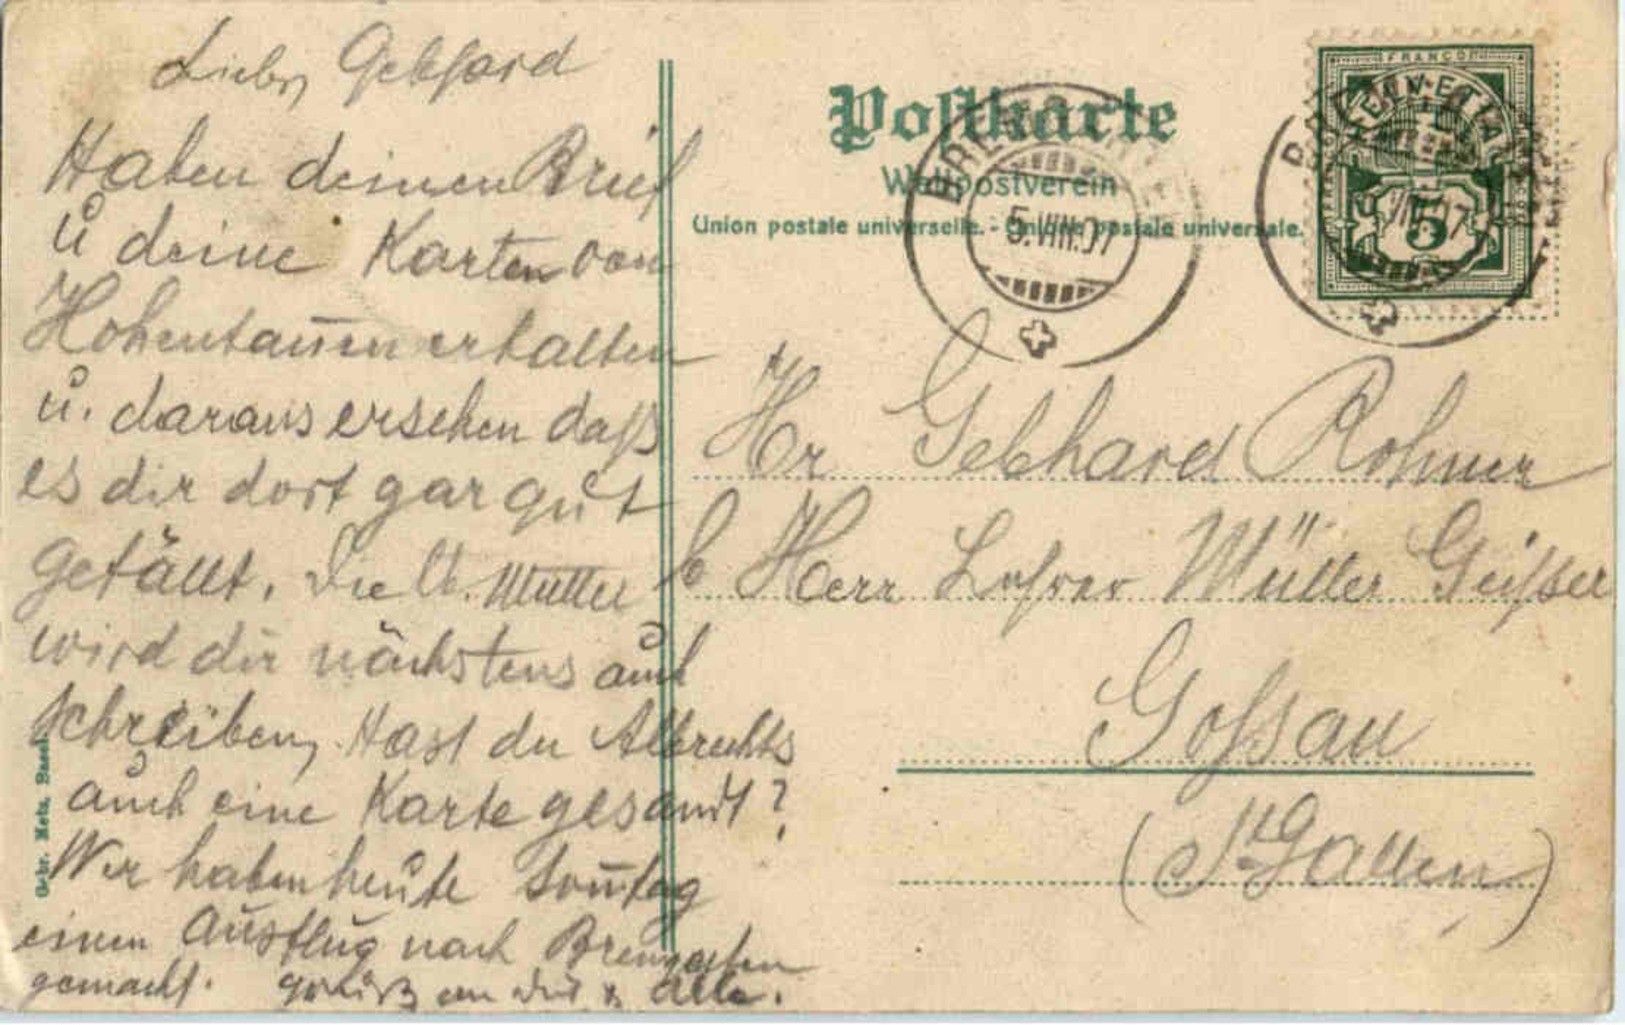 Lieber Gebhard
Haben deinen Brief
u deine Karten von
Hohentannen erhalten
u. daraus ersehen daß
es dir dort gar gut
gefällt. Die Mutter
wird dir nächstens auch
schreiben, Hast du Albrechts
auch eine Karte gesandt?
Wir haben heute Sonntag
einen Ausflug nach Bremgarten
gemacht. an &. Alle.
Gebr. Metz, Basel
Postkarte
Weltpostverein
Union postale universelle. - Unione postale universale.
5.VIII.07
FRANCO
HELVETIA
5
Hr Gebhard Rohner
b Herr Lehrer Müller
Goßau
(St Gallen)